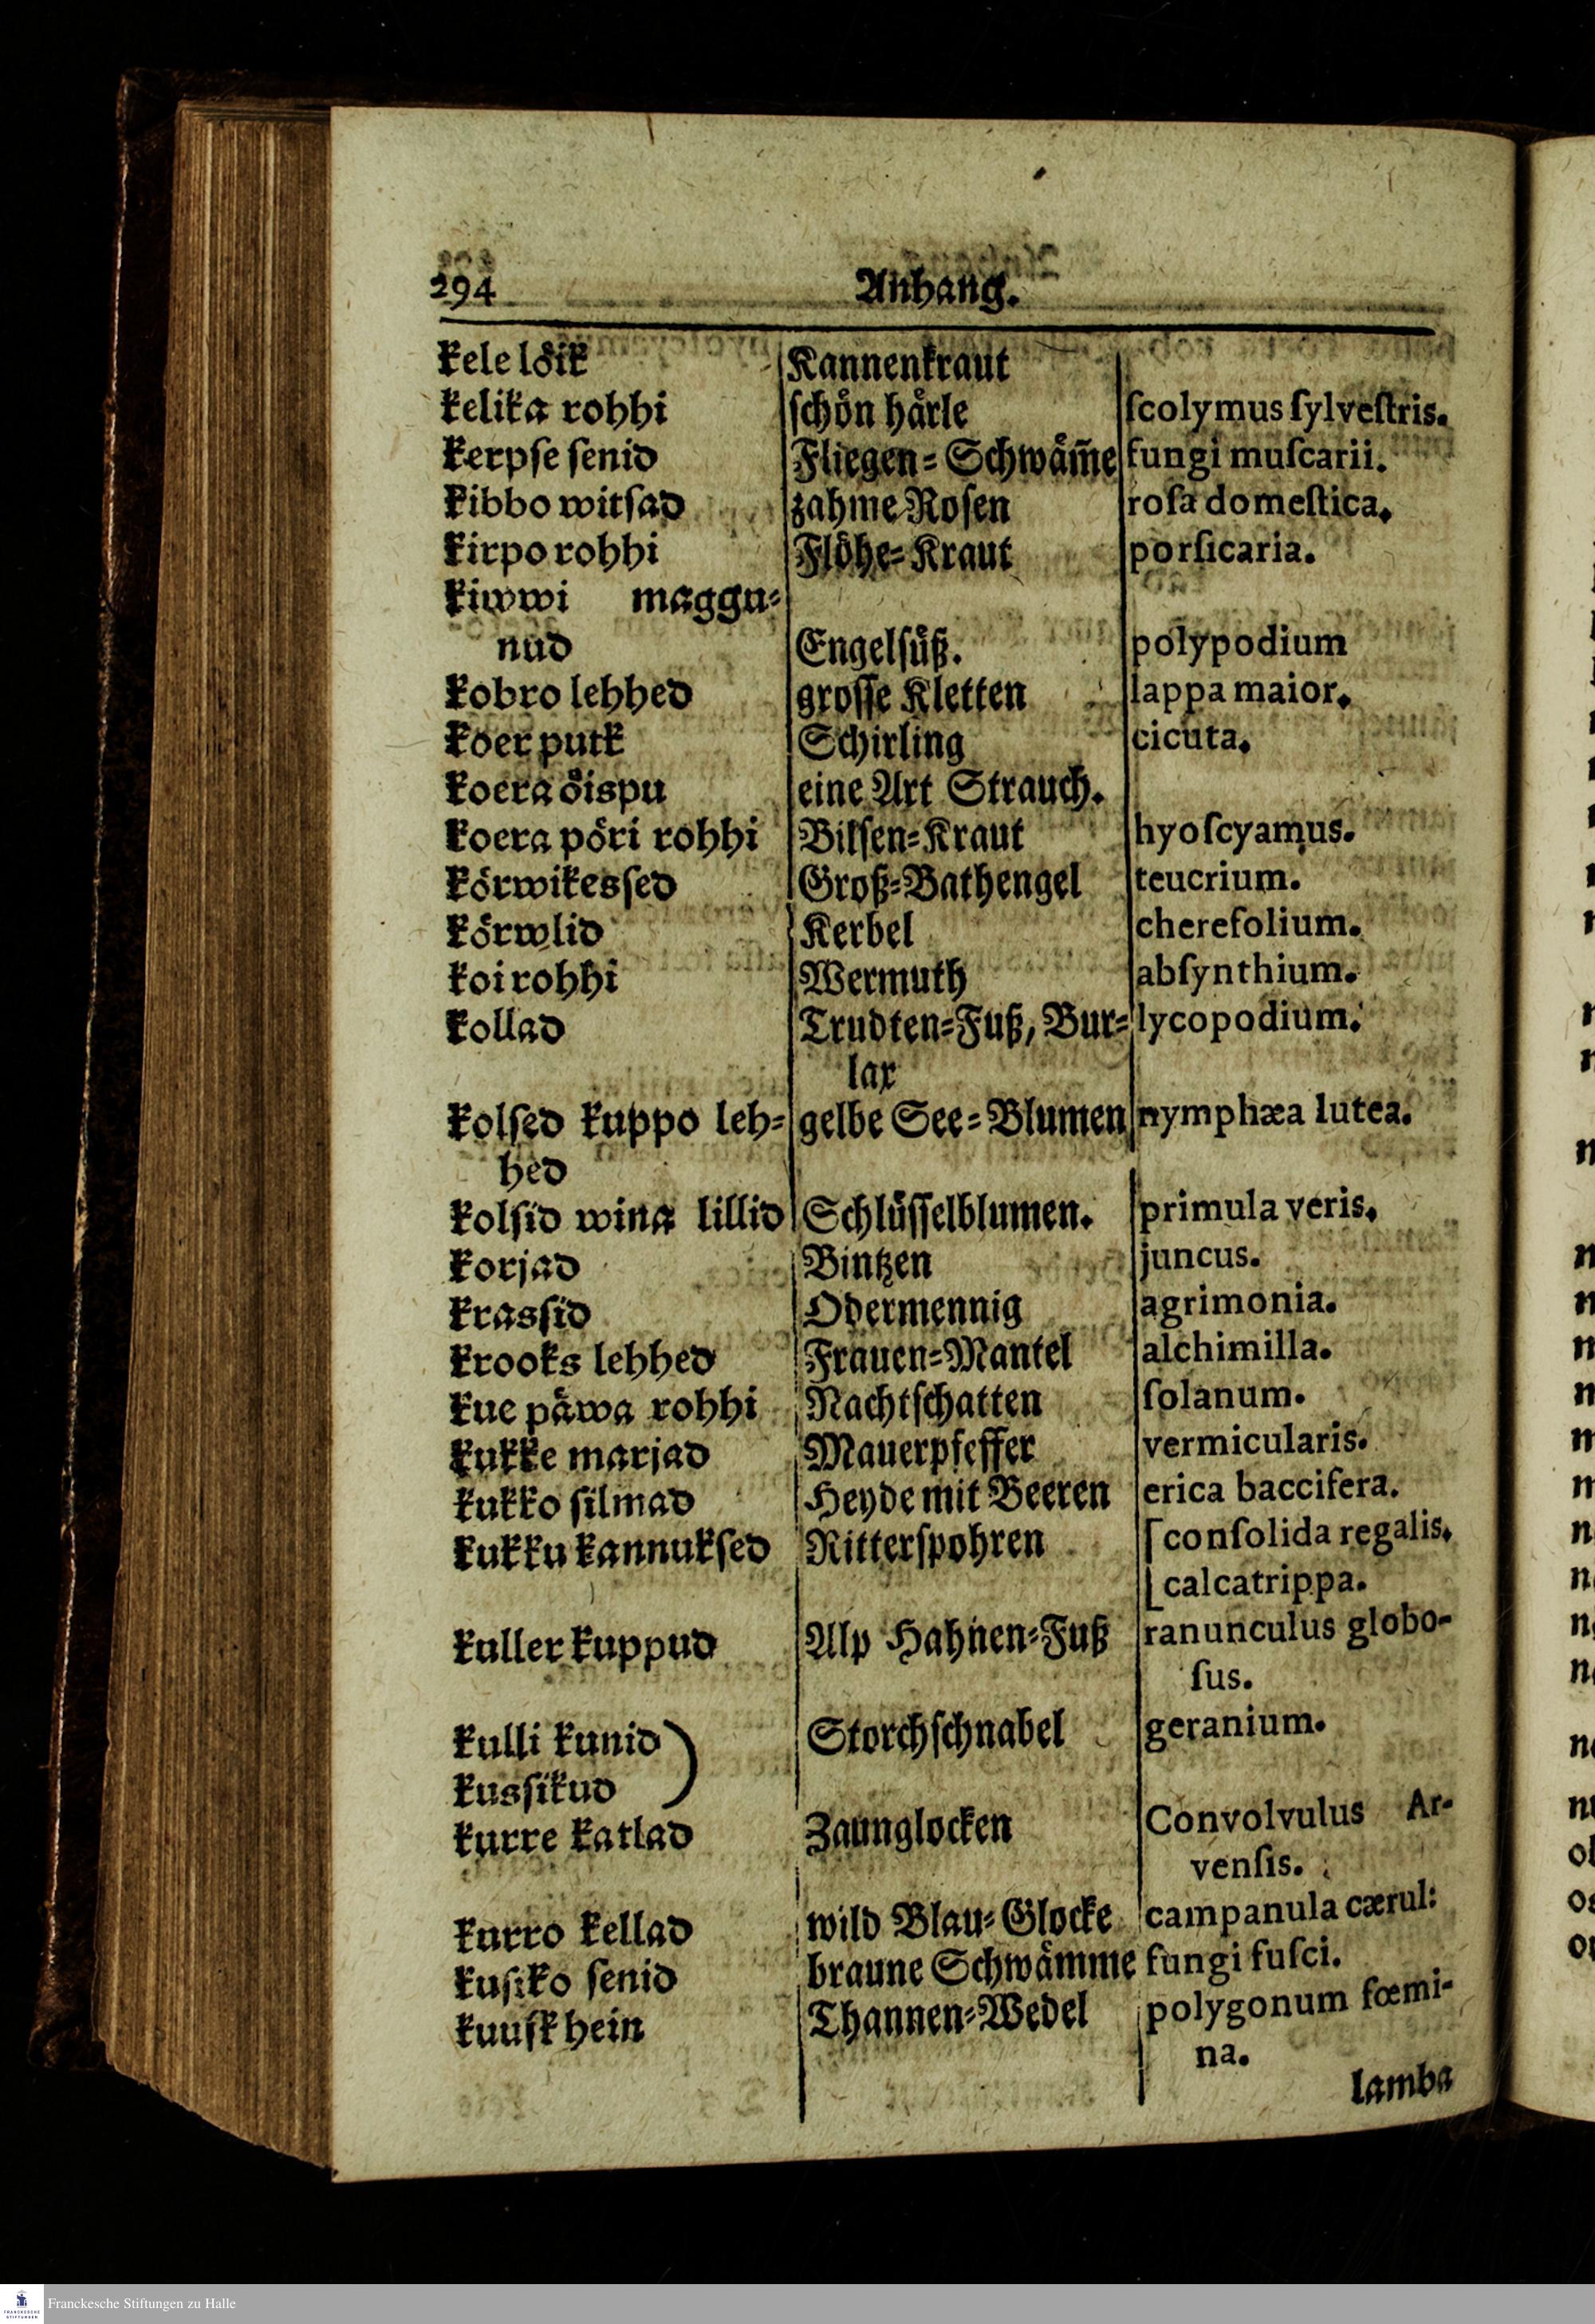 294 Anhang.
kele löik Kannenkraut
kelika rohhi schön härle ſcolymus ſylveſtris.
kerpse senid Fliegen-Schwäm̃e fungi muſcarii.
kibbo witsad zahme Rosen roſa domeſtica.
kirpo rohhi Flöhe-Kraut porſicaria.
kiwwi maggu-
nud Engelsüß. polypodium
kobro lehhed grosse Kletten lappa maior.
koer putk Schirling cicuta.
koera öispu eine Art Strauch.
koera pöri rohhi Bilsen-Kraut hyoſcyamus.
körwikessed Groß-Bathengel teucrium.
körwlid Kerbel cherefolium.
koirohhi Wermuth abſynthium.
kollad Trudten-Fuß, Bur- lycopodium.
lax
kolsed kuppo leh- gelbe See-Blumen nymphæa lutea.
hed
kolsid wina lillid Schlüsselblumen. primula veris.
korjad Bintzen juncus.
krassid Odermennig agrimonia.
krooks lehhed Frauen-Mantel alchimilla.
kue päwa rohhi Nachtschatten ſolanum.
kukke marjad Mauerpfeffer vermicularis.
kukko silmad Heyde mit Beeren erica baccifera.
kukku kannuksed Ritterspohren [conſolida regalis.
[calcatrippa.
kuller kuppud Alp Hahnen-Fuß ranunculus globo-
ſus.
kulli kunid) Storchschnabel geranium.
kussikud
kurre katlad Zaunglocken Convolvulus Ar-
venſis.
kurro kellad wild Blau-Glocke campanula cærul:
kusiko senid braune Schwämme fungi fuſci.
kuusk hein Thannen-Wedel polygonum fœmi-
na.
lamba
Franckesche Stiftungen zu Halle